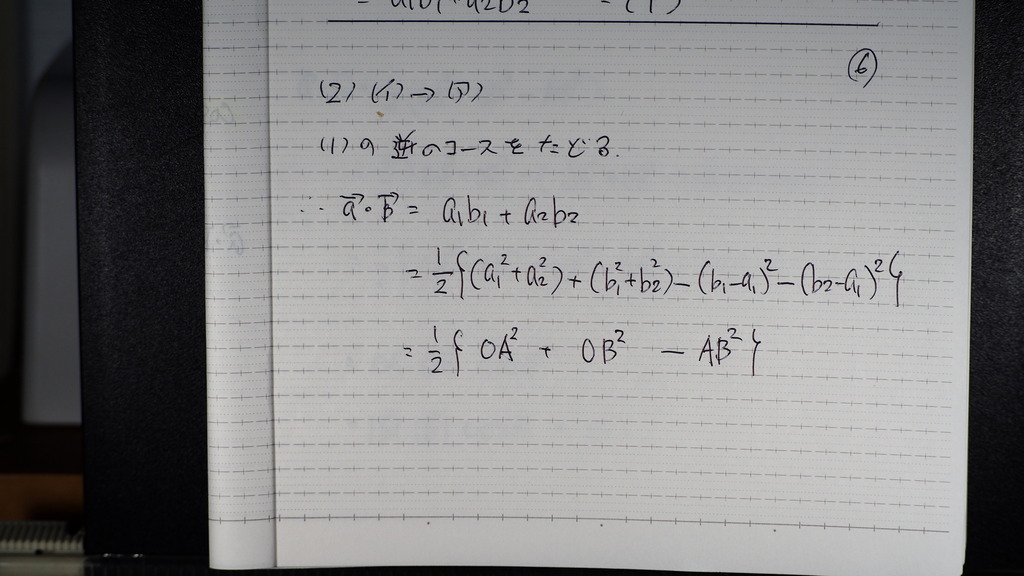 = a₁b₁+a₂b₂ = (イ)
⑥
(2) (イ) → (ア)
(1) の 逆のコースを たどる.
∴ a⃗・b⃗ = a₁b₁ + a₂b₂
= 1/2 { (a₁²+a₂²) + (b₁²+b₂²) − (b₁−a₁)² − (b₂−a₁)² }
= 1/2 { OA² + OB² − AB² }